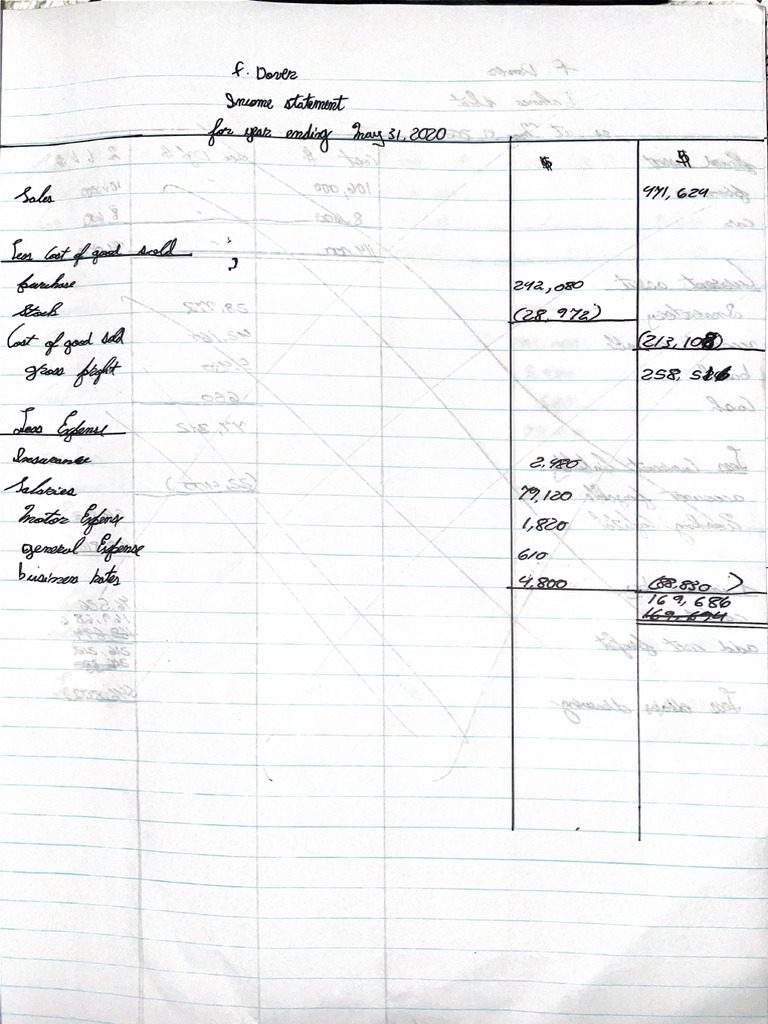 F. Dover
Income statement
for year ending May 31, 2020
$ $
Sales 471,624
Less Cost of good sold
purchase 242,080
Stock (28,972)
Cost of good sold (213,108)
gross profit 258,516
Less Expense
Insurance 2,480
Salaries 79,120
Motor Expense 1,820
general Expense 610
business rates 4,800 (88,830)
169,686
169,694